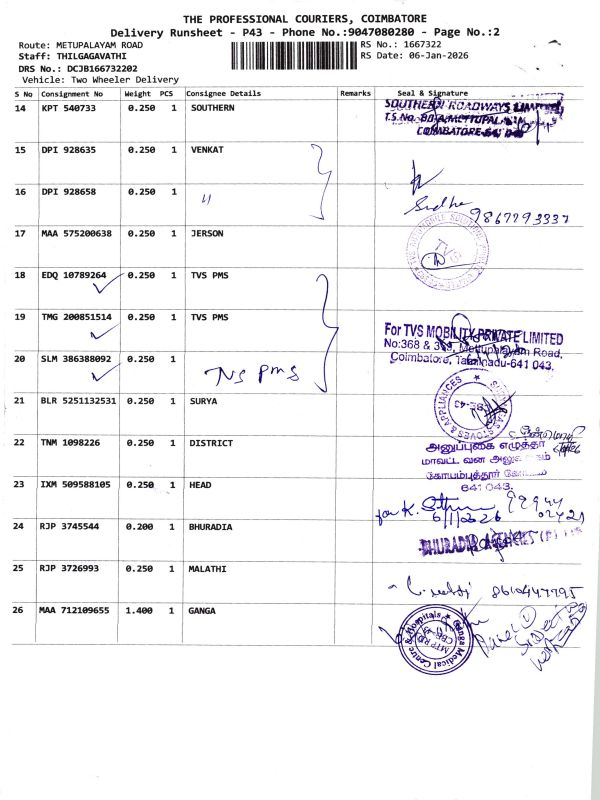 THE PROFESSIONAL COURIERS, COIMBATORE
Delivery Runsheet - P43 - Phone No.:9047080280 - Page No.:2
Route: METUPALAYAM ROAD
RS No.: 1667322
Staff: THILGAGAVATHI
RS Date: 06-Jan-2026
DRS No.: DCJB166732202
Vehicle: Two Wheeler Delivery
S No Consignment No Weight PCS Consignee Details Remarks Seal & Signature
14 KPT 540733 0.250 1 SOUTHERN
SOUTHERN ROADWAYS LIMITED
COIMBATORE
15 DPI 928635 0.250 1 VENKAT
16 DPI 928658 0.250 1  〃
Sudha 9867793337
17 MAA 575200638 0.250 1 JERSON
TVS
18 EDQ 10789264 0.250 1 TVS PMS
19 TMG 200851514 0.250 1 TVS PMS
For TVS MOBILITY PRIVATE LIMITED
No:368 & 369, Mettupalayam Road,
Coimbatore, Tamilnadu-641 043.
20 SLM 386388092 0.250 1 TVS PMS
21 BLR 5251132531 0.250 1 SURYA
STOVES & APPLIANCES
CBE-43
22 TNM 1098226 0.250 1 DISTRICT
அனுப்புகை எழுத்தர்
மாவட்ட வன அலுவலகம்
கோயம்புத்தூர் கோட்டம்
641 043.
23 IXM 509588105 0.250 1 HEAD
for K.
6/1/2026
24 RJP 3745544 0.200 1 BHURADIA
BHURADIA AGENCIES (P) LTD
25 RJP 3726993 0.250 1 MALATHI
8610447795
26 MAA 712109655 1.400 1 GANGA
Ganga Medical Centre & Hospitals
MTP RD
CBE-43